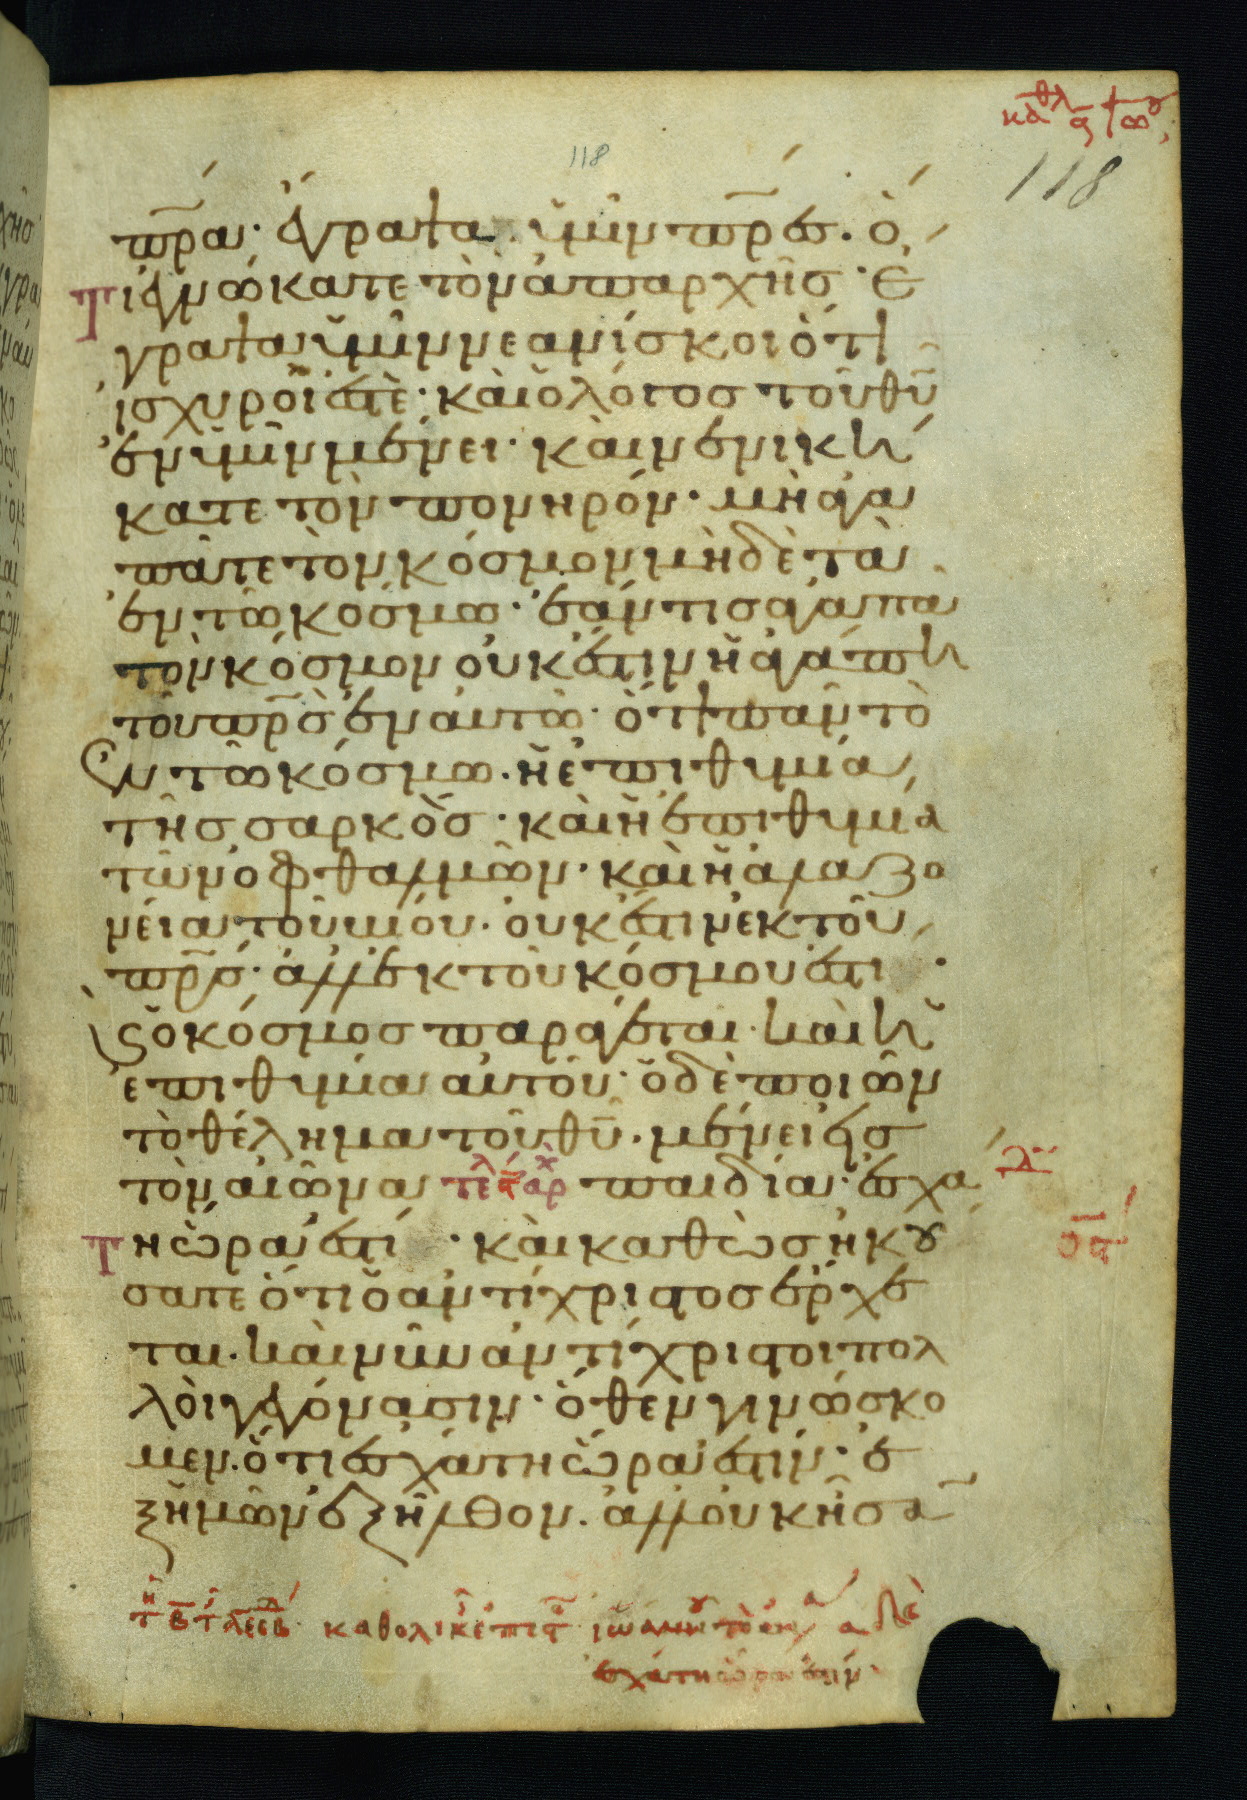 118
118
πρα· ἔγραψα ὑμῖν πρσ· ὅ
τι ἐγνώκατε τὸν ἀπαρχῆσ· ἔ
γραψα ὑμῖν νεανίσκοι ὅτι
ἰσχυροί ἐστὲ· καὶ ὁ λόγοσ τοῦ θυ
ἐν ὑμῖν μένει· καὶ νενική
κατε τὸν πονηρόν· μὴ ἀγα
πᾶτε τὸν κόσμον μὴδὲ τὰ
ἐν τῶ κόσμω· ἐάν τισ ἀγαπα
τὸν κόσμον οὐκ ἔστιν ἡ ἀγάπη
τοῦ πρσ ἐν αὐτῶ· ὅτι πᾶν τὸ
ἐν τῶ κόσμω· ἡ ἐπιθυμία
τῆσ σαρκὸσ· καὶ ἡ ἐπιθυμία
τῶν ὀφθαλμῶν· καὶ ἡ ἀλαζο
νεία τοῦ βίου· οὐκ ἔστιν ἐκ τοῦ
πρσ· ἀλλ ἐκ τοῦ κόσμου ἐστί·
ϗ ὁ κόσμοσ παράγεται· καὶ ἡ
ἐπιθυμία αὐτοῦ· ὁ δὲ ποιῶν
τὸ θέλημα τοῦ θυ· μένει εἰσ
τὸν αἰῶνα τελ αρχ παιδία· ἐσχά
τη ὥρα ἐστί· καὶ καθὼσ ἠκού
σατε ὅτι ὁ ἀντίχριστοσ ἔρχε
ται· καὶ νῦν ἀντίχριστοι πολ
λοὶ γεγόνασιν· ὅθεν γινώσκο
μεν· ὅτι ἐσχάτη ὥρα ἐστίν· ἐ
ξ ἡμῶν ἐξῆλθον· ἀλλ οὐκ ἦσα
ἐσχάτη ὥρα ἐστίν